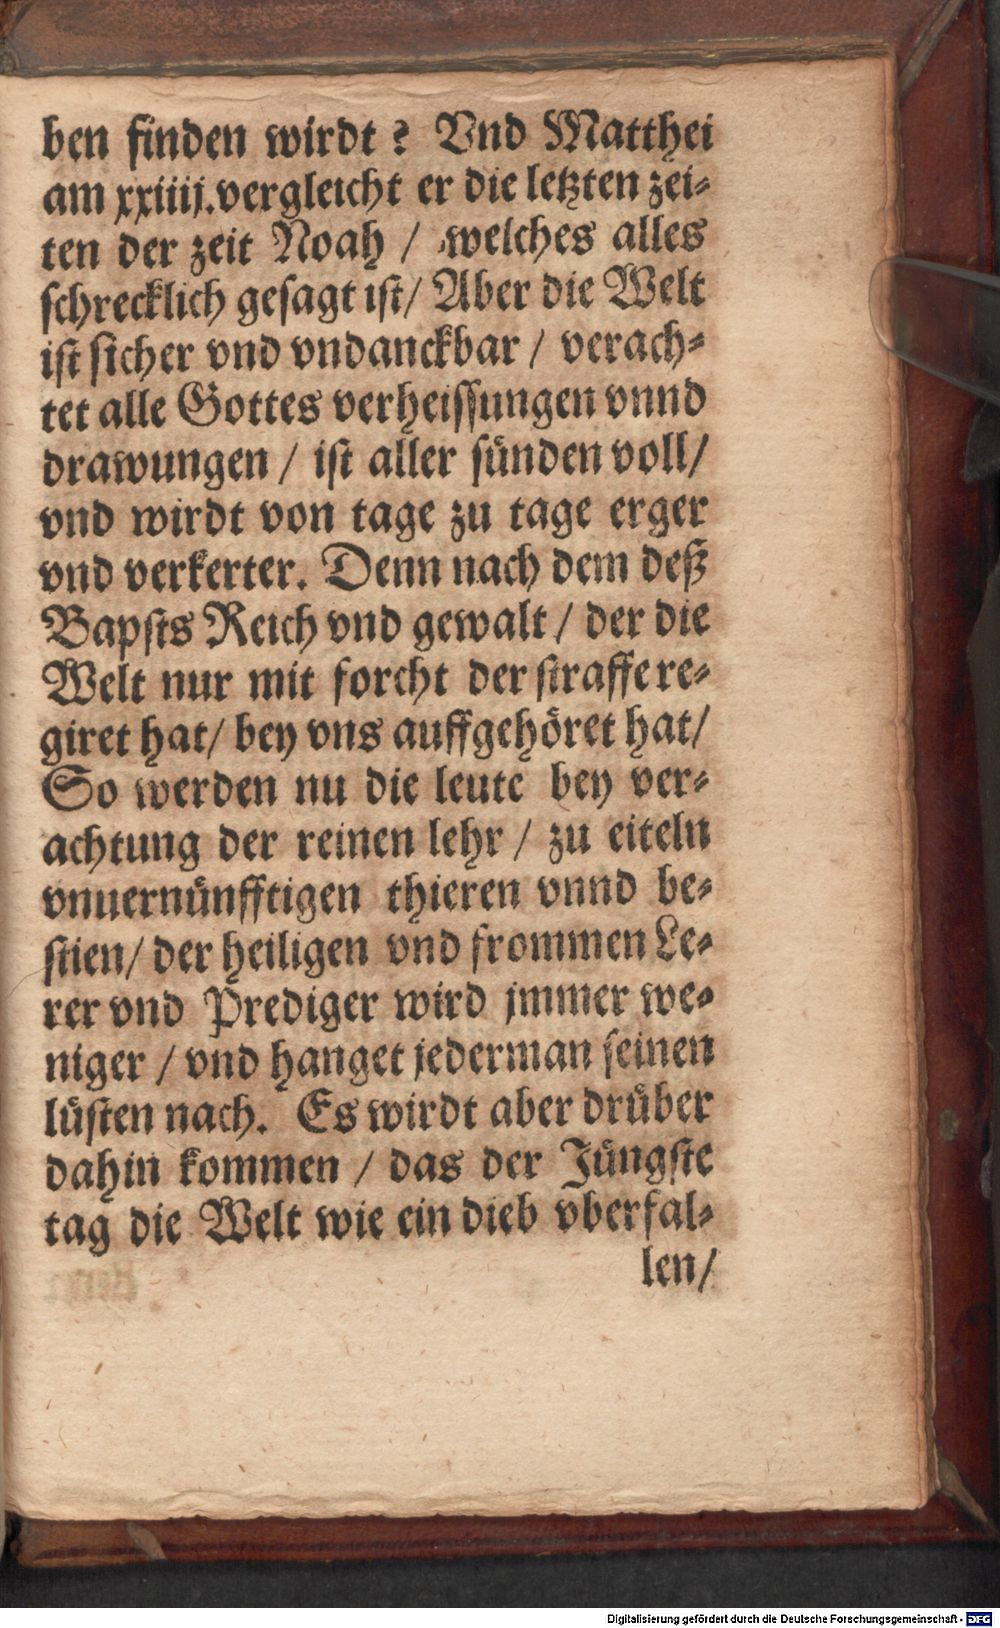 ben finden wirdt? Vnd Matthei
am xxiiij. vergleicht er die letzten zei-
ten der zeit Noah / welches alles
schrecklich gesagt ist / Aber die Welt
ist sicher vnd vndanckbar / verach-
tet alle Gottes verheissungen vnnd
drawungen / ist aller sünden voll /
vnd wirdt von tage zu tage erger
vnd verkerter. Denn nach dem deß
Bapsts Reich vnd gewalt / der die
Welt nur mit forcht der straffe re-
giret hat / bey vns auffgehöret hat /
So werden nu die leute bey ver-
achtung der reinen lehr / zu eiteln
vnuernünfftigen thieren vnnd be-
stien / der heiligen vnd frommen Le-
rer vnd Prediger wird jmmer we-
niger / vnd hanget jederman seinen
lüsten nach. Es wirdt aber drüber
dahin kommen / das der Jüngste
tag die Welt wie ein dieb vberfal-
len /
Digitalisierung gefördert durch die Deutsche Forschungsgemeinschaft - DFG